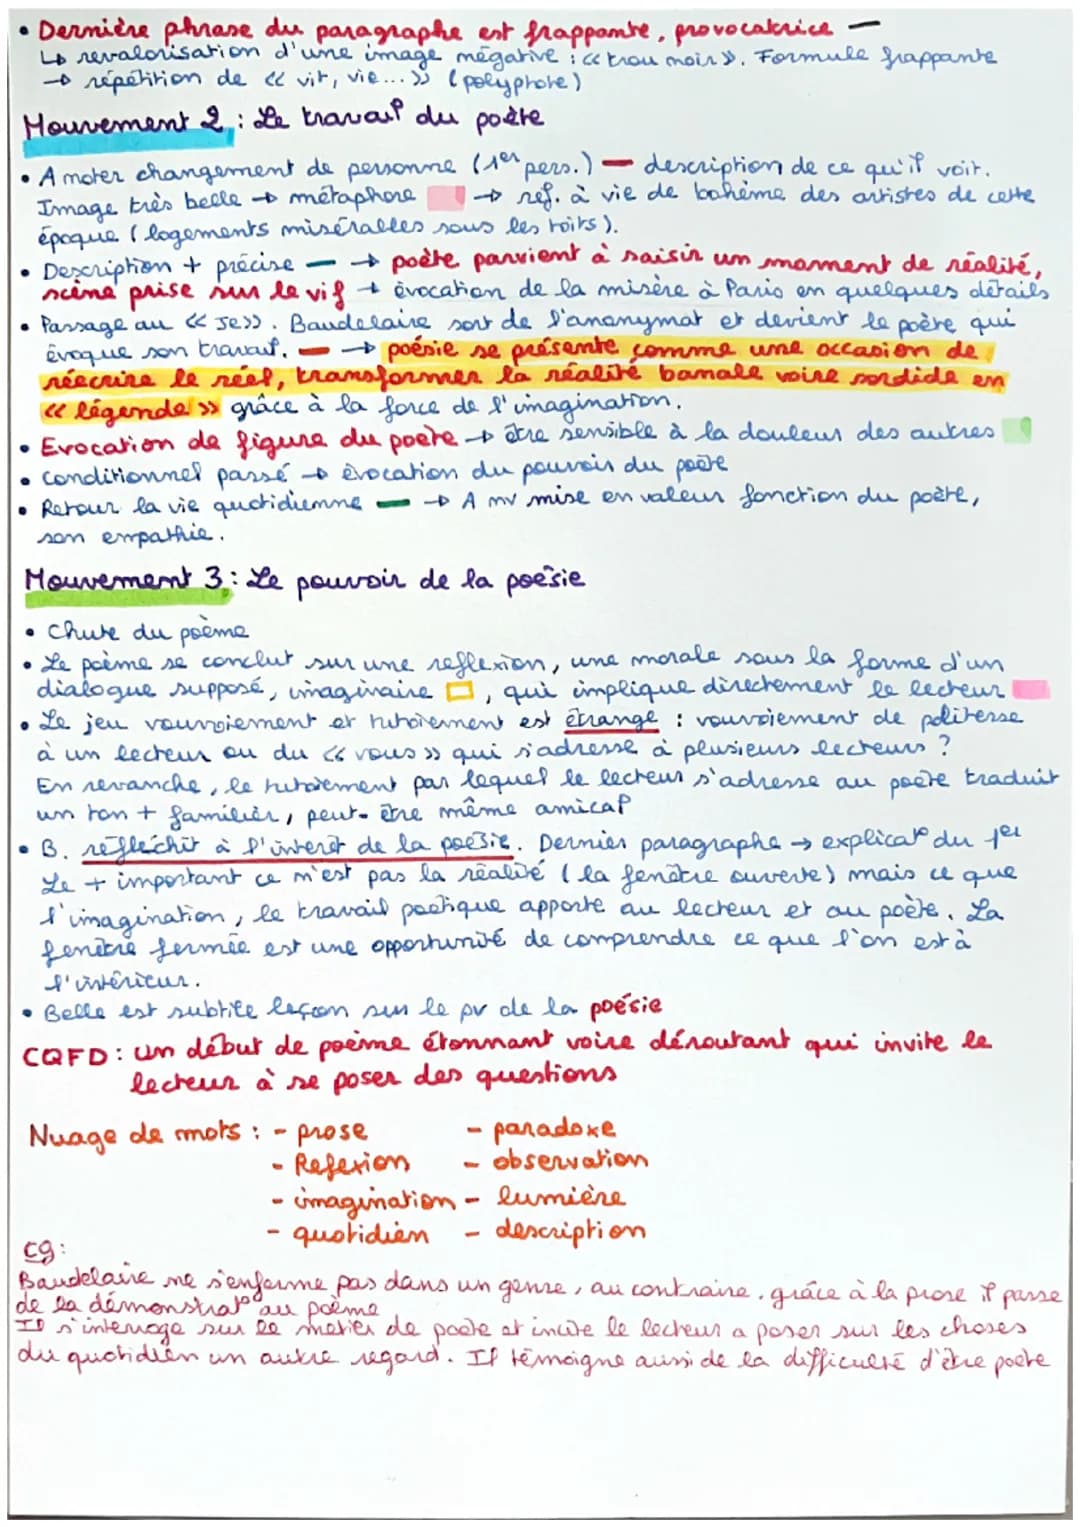 • Dernière phrase du paragraphe est frappante, provocatrice —
↳ revalorisation d'une image négative : « trou noir ». Formule frappante
→ répétition de « vit, vie... » (polyptote)
Mouvement 2 : Le travail du poète
• A noter changement de personne (1er pers.) — description de ce qu'il voit.
Image très belle → métaphore → ref. à vie de bohème des artistes de cette
époque (logements misérables sous les toits).
• Description + précise — → poète parvient à saisir un moment de réalité,
scène prise sur le vif → évocation de la misère à Paris en quelques détails
• Passage au « Je ». Baudelaire sort de l'anonymat et devient le poète qui
évoque son travail. — → poésie se présente comme une occasion de
réécrire le réel, transformer la réalité banale voire sordide en
« légende » grâce à la force de l'imagination.
• Evocation de figure du poète → être sensible à la douleur des autres
• conditionnel passé → évocation du pouvoir du poète
• Retour la vie quotidienne — → A nv mise en valeur fonction du poète,
son empathie.
Mouvement 3 : Le pouvoir de la poésie
• Chute du poème
• Le poème se conclut sur une reflexion, une morale sous la forme d'un
dialogue supposé, imaginaire , qui implique directement le lecteur
• Le jeu vouvoiement et tutoiement est étrange : vouvoiement de politesse
à un lecteur ou du « vous » qui s'adresse à plusieurs lecteurs ?
En revanche, le tutoiement par lequel le lecteur s'adresse au poète traduit
un ton + familier, peut-être même amical
• B. réfléchit à l'intérêt de la poésie. Dernier paragraphe → explicat° du 1er
Le + important ce n'est pas la réalité (la fenêtre ouverte) mais ce que
l'imagination, le travail poétique apporte au lecteur et au poète. La
fenêtre fermée est une opportunité de comprendre ce que l'on est à
l'intérieur.
• Belle est subtile leçon sur le pv de la poésie
CQFD : un début de poème étonnant voire déroutant qui invite le
lecteur à se poser des questions
Nuage de mots : - prose - paradoxe
- Refexion - observation
- imagination - lumière
- quotidien - description
cg :
Baudelaire ne s'enferme pas dans un genre, au contraire, grâce à la prose il passe
de la démonstrat° au poème
Il s'interroge sur le métier de poète et incite le lecteur a poser sur les choses
du quotidien un autre regard. Il témoigne aussi de la difficulté d'être poète